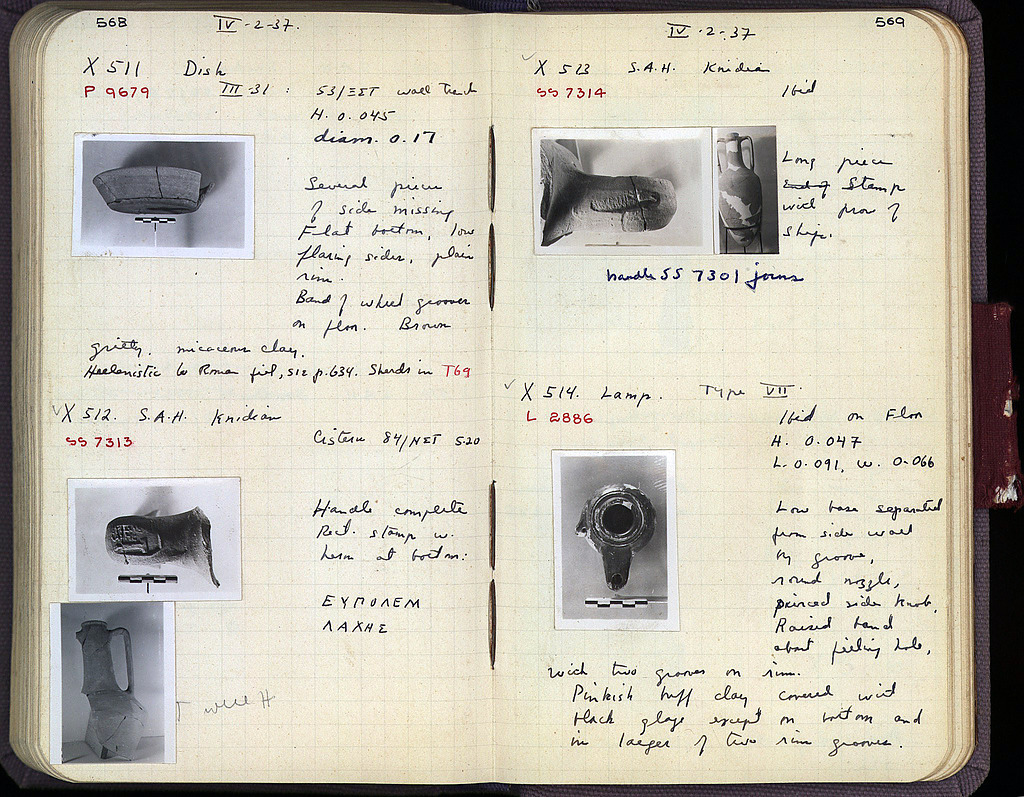 568
IV-2-37.
X 511 Disk
P 9679
III-31 : 53/ΞΣΤ wall trench
H. 0.045
diam. 0.17
Several pieces
of side missing
Flat bottom, low
flaring sides, plain
rim.
Band of wheel grooves
on floor. Brown
gritty, micaceous clay.
Hellenistic to Roman fill, see p.634. Sherds in T69
X 512. S.A.H. Knidian
SS 7313
Cistern 84/ΝΣΤ 520
Handle complete
Rect. stamp w.
herm at bottom:
ΕΥΠΟΛΕΜ
ΛΑΧΗΣ
well H
569
IV-2-37
X 513 S.A.H. Knidian
SS 7314
Ibid
Long piece
Stamp
with prow of
ship.
handle SS 7301 joins
X 514. Lamp. Type VII.
L 2886
Ibid on Floor
H. 0.047
L. 0.091, W. 0.066
Low base separated
from side wall
by groove,
round nozzle,
pierced side knob.
Raised band
about filling hole,
with two grooves on rim.
Pinkish buff clay covered with
black glaze except on bottom and
in larger of two rim grooves.